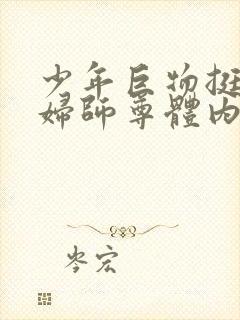 少年巨物挺
婦師尊體內
岑宏